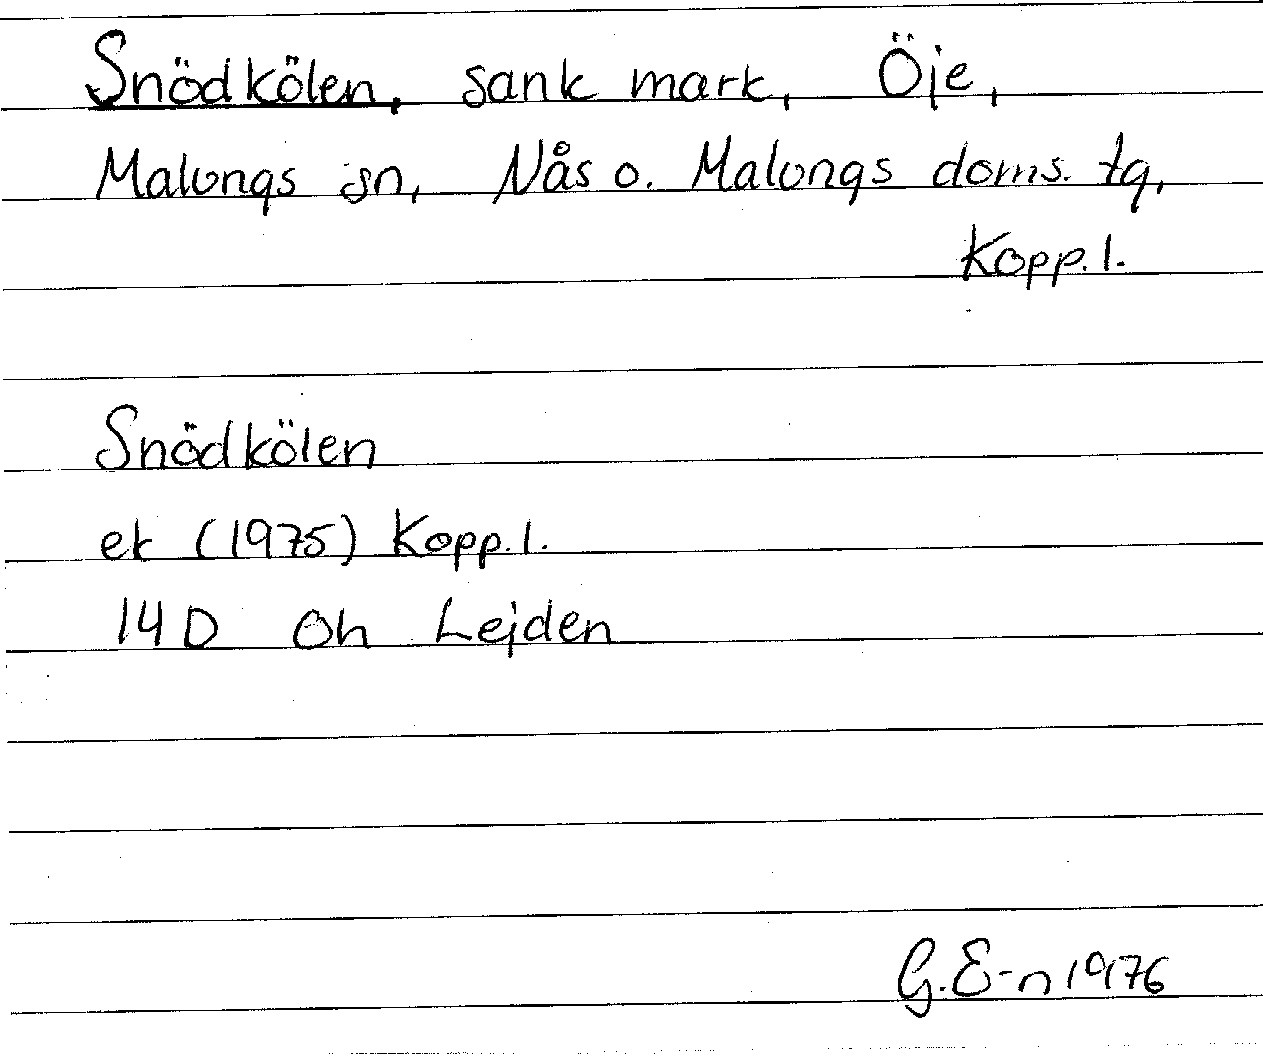 Snödkölen, sank mark, Öje,
Malungs sn, Nås o. Malungs doms. tg,
Kopp. l.
Snödkölen
ek (1975) Kopp. l.
14D Oh Lejden
G. E-n 1976